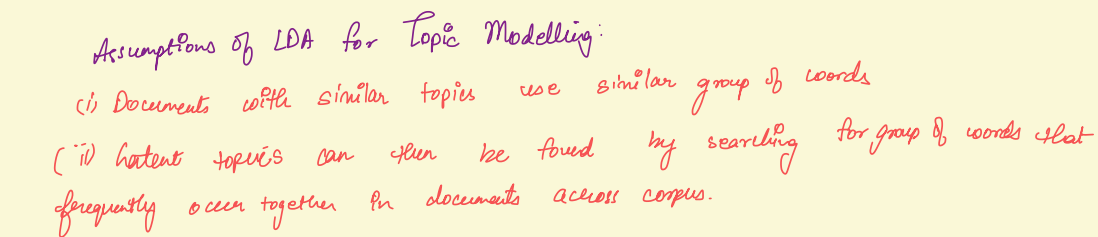 Assumptions of LDA for Topic Modelling:
(i) Documents with similar topics use similar group of words
(ii) Latent topics can then be found by searching for group of words that
frequently occur together in documents across corpus.